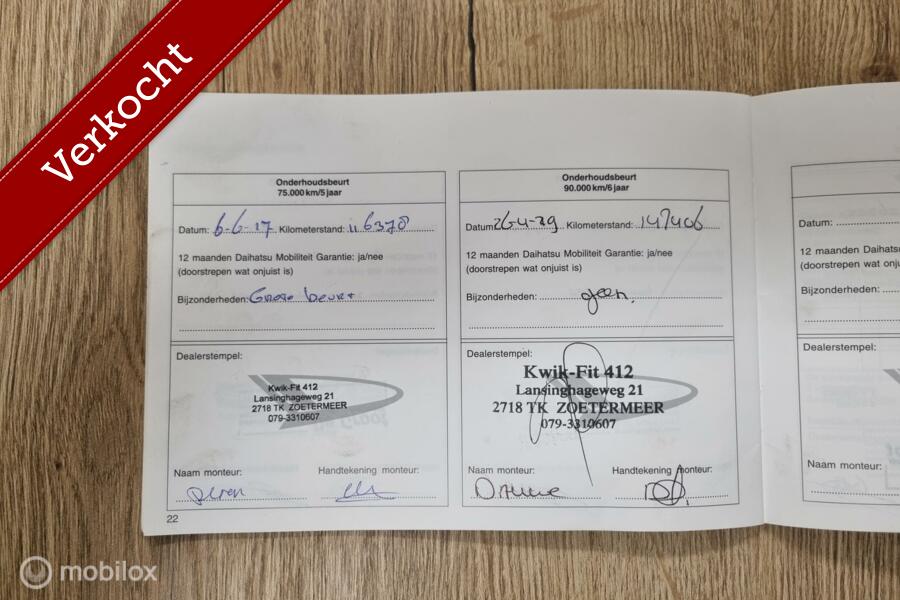 Verkocht
Onderhoudsbeurt
75.000 km/5 jaar
Datum: 6-6-17 Kilometerstand: 116370
12 maanden Daihatsu Mobiliteit Garantie: ja/nee
(doorstrepen wat onjuist is)
Bijzonderheden: Grote beurt
Dealerstempel:
Kwik-Fit 412
Lansinghageweg 21
2718 TK ZOETERMEER
079-3310607
Naam monteur: Handtekening monteur:
22
Onderhoudsbeurt
90.000 km/6 jaar
Datum: Kilometerstand: 147406
12 maanden Daihatsu Mobiliteit Garantie: ja/nee
(doorstrepen wat onjuist is)
Bijzonderheden: geen.
Dealerstempel:
Kwik-Fit 412
Lansinghageweg 21
2718 TK ZOETERMEER
079-3310607
Naam monteur: Handtekening monteur:
Datum:
12 maanden Daihatsu
(doorstrepen wat
Bijzonderheden:
Dealerstempel:
Naam monteur:
mobilox